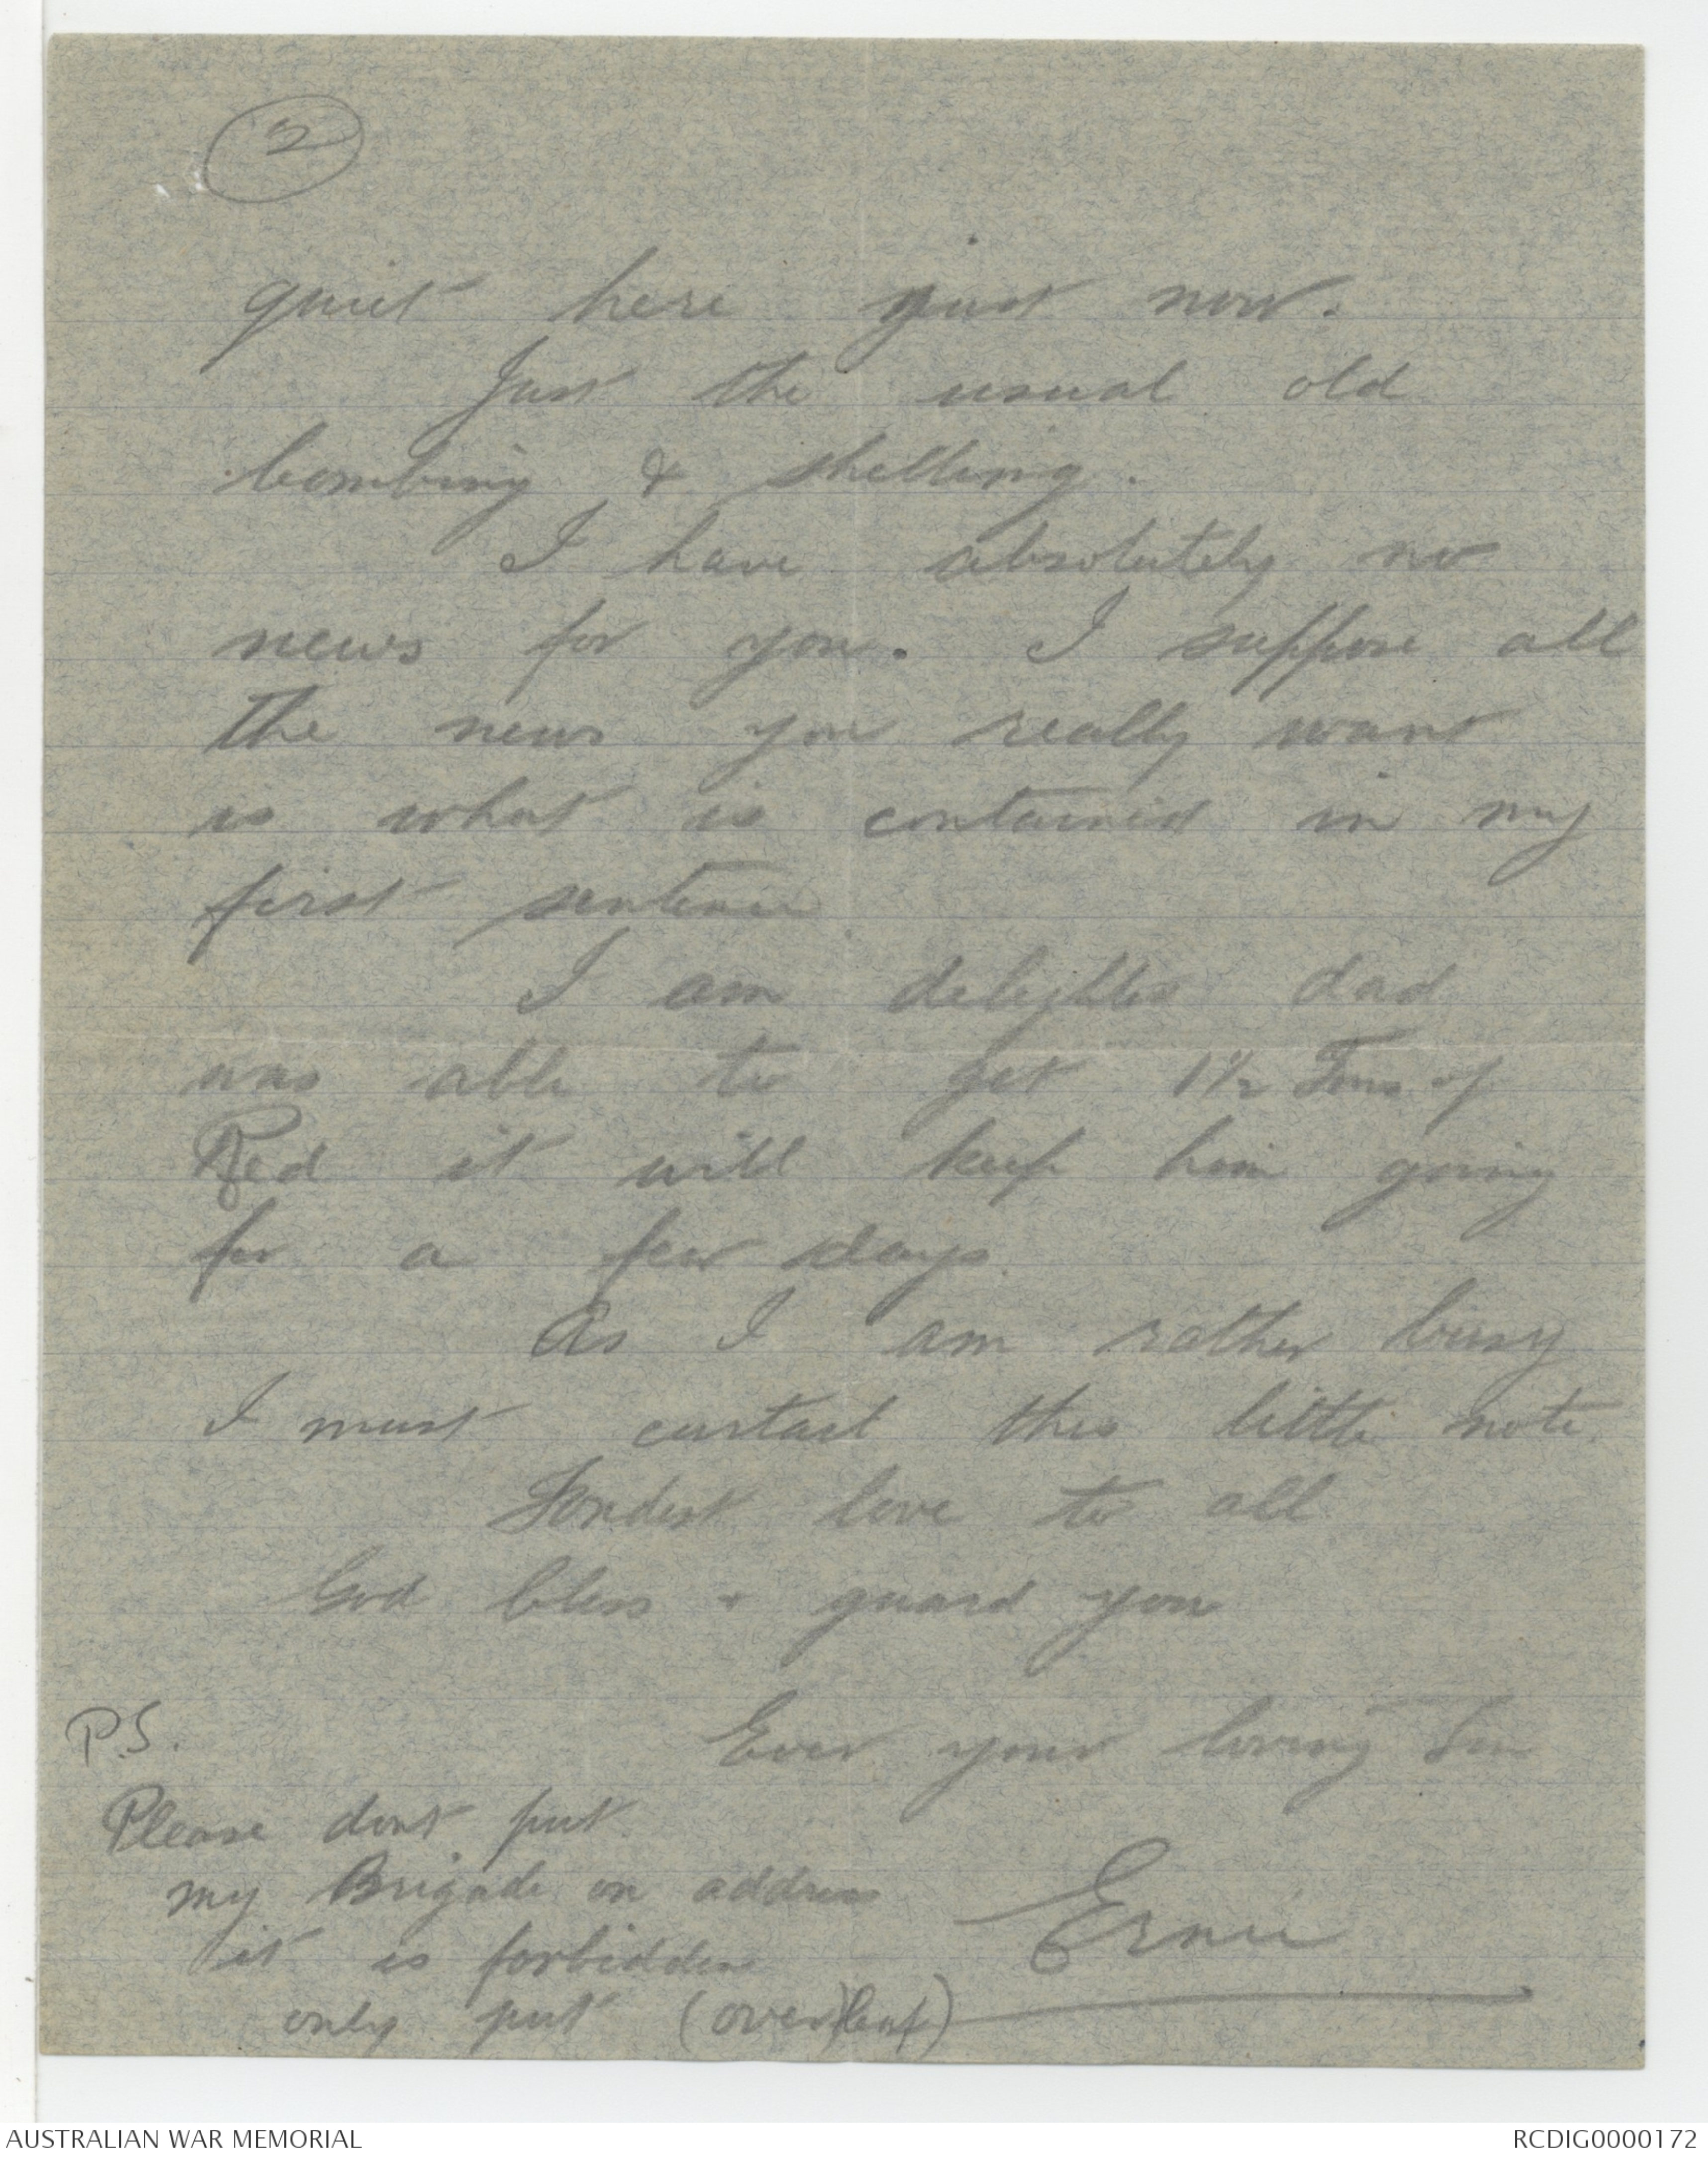 2
quiet here just now.
Just the usual old
bombing & shelling.
I have absolutely no
news for you. I suppose all
the news you really want
is what is contained in my
first sentence
I am delighted dad
was able to get 1½ Tons of
Red it will keep him going
for a few days.
As I am rather busy
I must curtail this little note.
Fondest love to all
God bless + guard you
Ever your loving Son
Ernie
P.S.
Please dont put
my Brigade on address
it is forbidden
only put (over)leaf)
AUSTRALIAN WAR MEMORIAL
RCDIG0000172